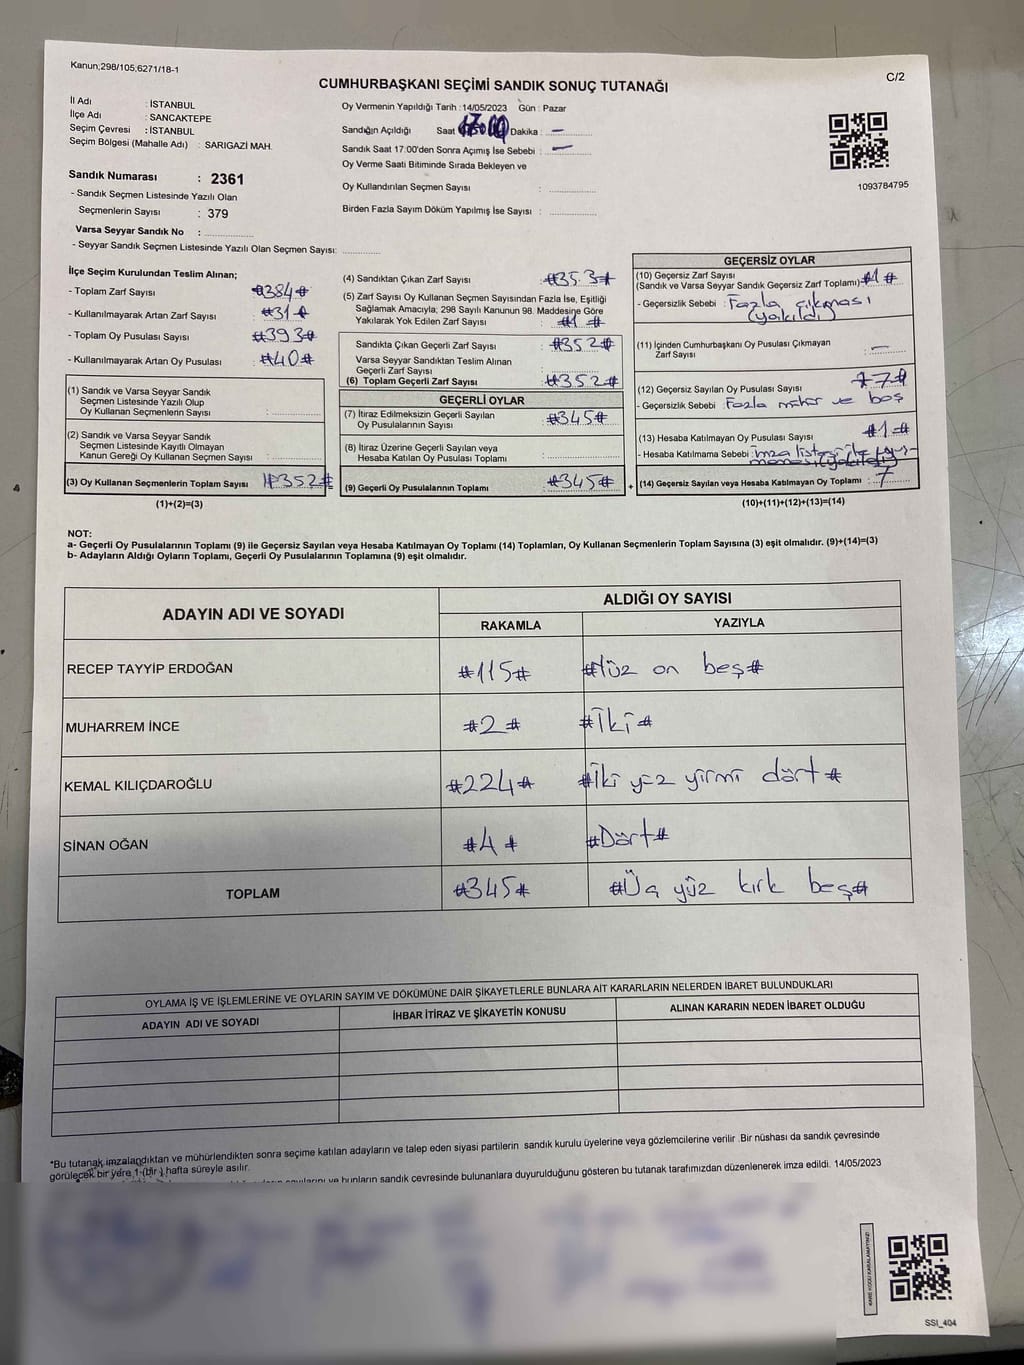 Kanun;298/105,6271/18-1
C/2
CUMHURBAŞKANI SEÇİMİ SANDIK SONUÇ TUTANAĞI
İl Adı : İSTANBUL
İlçe Adı : SANCAKTEPE
Seçim Çevresi : İSTANBUL
Seçim Bölgesi (Mahalle Adı) : SARIGAZİ MAH.
Sandık Numarası : 2361
- Sandık Seçmen Listesinde Yazılı Olan
Seçmenlerin Sayısı : 379
Varsa Seyyar Sandık No :
- Seyyar Sandık Seçmen Listesinde Yazılı Olan Seçmen Sayısı:
Oy Vermenin Yapıldığı Tarih : 14/05/2023 Gün : Pazar
Sandığın Açıldığı Saat Dakika : —
Sandık Saat 17:00'den Sonra Açımış İse Sebebi : —
Oy Verme Saati Bitiminde Sırada Bekleyen ve
Oy Kullandırılan Seçmen Sayısı :
Birden Fazla Sayım Döküm Yapılmış İse Sayısı :
1093784795
İlçe Seçim Kurulundan Teslim Alınan;
- Toplam Zarf Sayısı : #384#
- Kullanılmayarak Artan Zarf Sayısı : #31#
- Toplam Oy Pusulası Sayısı : #393#
- Kullanılmayarak Artan Oy Pusulası : #40#
(1) Sandık ve Varsa Seyyar Sandık
Seçmen Listesinde Yazılı Olup
Oy Kullanan Seçmenlerin Sayısı :
(2) Sandık ve Varsa Seyyar Sandık
Seçmen Listesinde Kayıtlı Olmayan
Kanun Gereği Oy Kullanan Seçmen Sayısı :
(3) Oy Kullanan Seçmenlerin Toplam Sayısı #352#
(1)+(2)=(3)
(4) Sandıktan Çıkan Zarf Sayısı : #353#
(5) Zarf Sayısı Oy Kullanan Seçmen Sayısından Fazla İse, Eşitliği
Sağlamak Amacıyla; 298 Sayılı Kanunun 98. Maddesine Göre
Yakılarak Yok Edilen Zarf Sayısı : #1#
Sandıkta Çıkan Geçerli Zarf Sayısı : #352#
Varsa Seyyar Sandıktan Teslim Alınan
Geçerli Zarf Sayısı :
(6) Toplam Geçerli Zarf Sayısı : #352#
GEÇERLİ OYLAR
(7) İtiraz Edilmeksizin Geçerli Sayılan
Oy Pusulalarının Sayısı : #345#
(8) İtiraz Üzerine Geçerli Sayılan veya
Hesaba Katılan Oy Pusulası Toplamı :
(9) Geçerli Oy Pusulalarının Toplamı : #345# +
GEÇERSİZ OYLAR
(10) Geçersiz Zarf Sayısı
(Sandık ve Varsa Seyyar Sandık Geçersiz Zarf Toplamı) : #1#
- Geçersizlik Sebebi : Fazla çıkması
(yakıldı)
(11) İçinden Cumhurbaşkanı Oy Pusulası Çıkmayan
Zarf Sayısı : —
(12) Geçersiz Sayılan Oy Pusulası Sayısı #7#
- Geçersizlik Sebebi : Fazla mühür ve boş
(13) Hesaba Katılmayan Oy Pusulası Sayısı : #1#
- Hesaba Katılmama Sebebi : imza listesi ile uyuş-
maması (yakıldı)
(14) Geçersiz Sayılan veya Hesaba Katılmayan Oy Toplamı : 7
(10)+(11)+(12)+(13)=(14)
NOT:
a- Geçerli Oy Pusulalarının Toplamı (9) ile Geçersiz Sayılan veya Hesaba Katılmayan Oy Toplamı (14) Toplamları, Oy Kullanan Seçmenlerin Toplam Sayısına (3) eşit olmalıdır. (9)+(14)=(3)
b- Adayların Aldığı Oyların Toplamı, Geçerli Oy Pusulalarının Toplamına (9) eşit olmalıdır.
ADAYIN ADI VE SOYADI
ALDIĞI OY SAYISI
RAKAMLA YAZIYLA
RECEP TAYYİP ERDOĞAN #115# #Yüz on beş#
MUHARREM İNCE #2# #İki#
KEMAL KILIÇDAROĞLU #224# #İki yüz yirmi dört#
SİNAN OĞAN #4# #Dört#
TOPLAM #345# #Üç yüz kırk beş#
OYLAMA İŞ VE İŞLEMLERİNE VE OYLARIN SAYIM VE DÖKÜMÜNE DAİR ŞİKAYETLERLE BUNLARA AİT KARARLARIN NELERDEN İBARET BULUNDUKLARI
ADAYIN ADI VE SOYADI İHBAR İTİRAZ VE ŞİKAYETİN KONUSU ALINAN KARARIN NEDEN İBARET OLDUĞU
*Bu tutanak imzalandıktan ve mühürlendikten sonra seçime katılan adayların ve talep eden siyasi partilerin sandık kurulu üyelerine veya gözlemcilerine verilir .Bir nüshası da sandık çevresinde
görülecek bir yere 1 (bir ) hafta süreyle asılır.
ve bunların sandık çevresinde bulunanlara duyurulduğunu gösteren bu tutanak tarafımızdan düzenlenerek imza edildi. 14/05/2023
KARE KODU KARALAMAYINIZ!
SSI_404